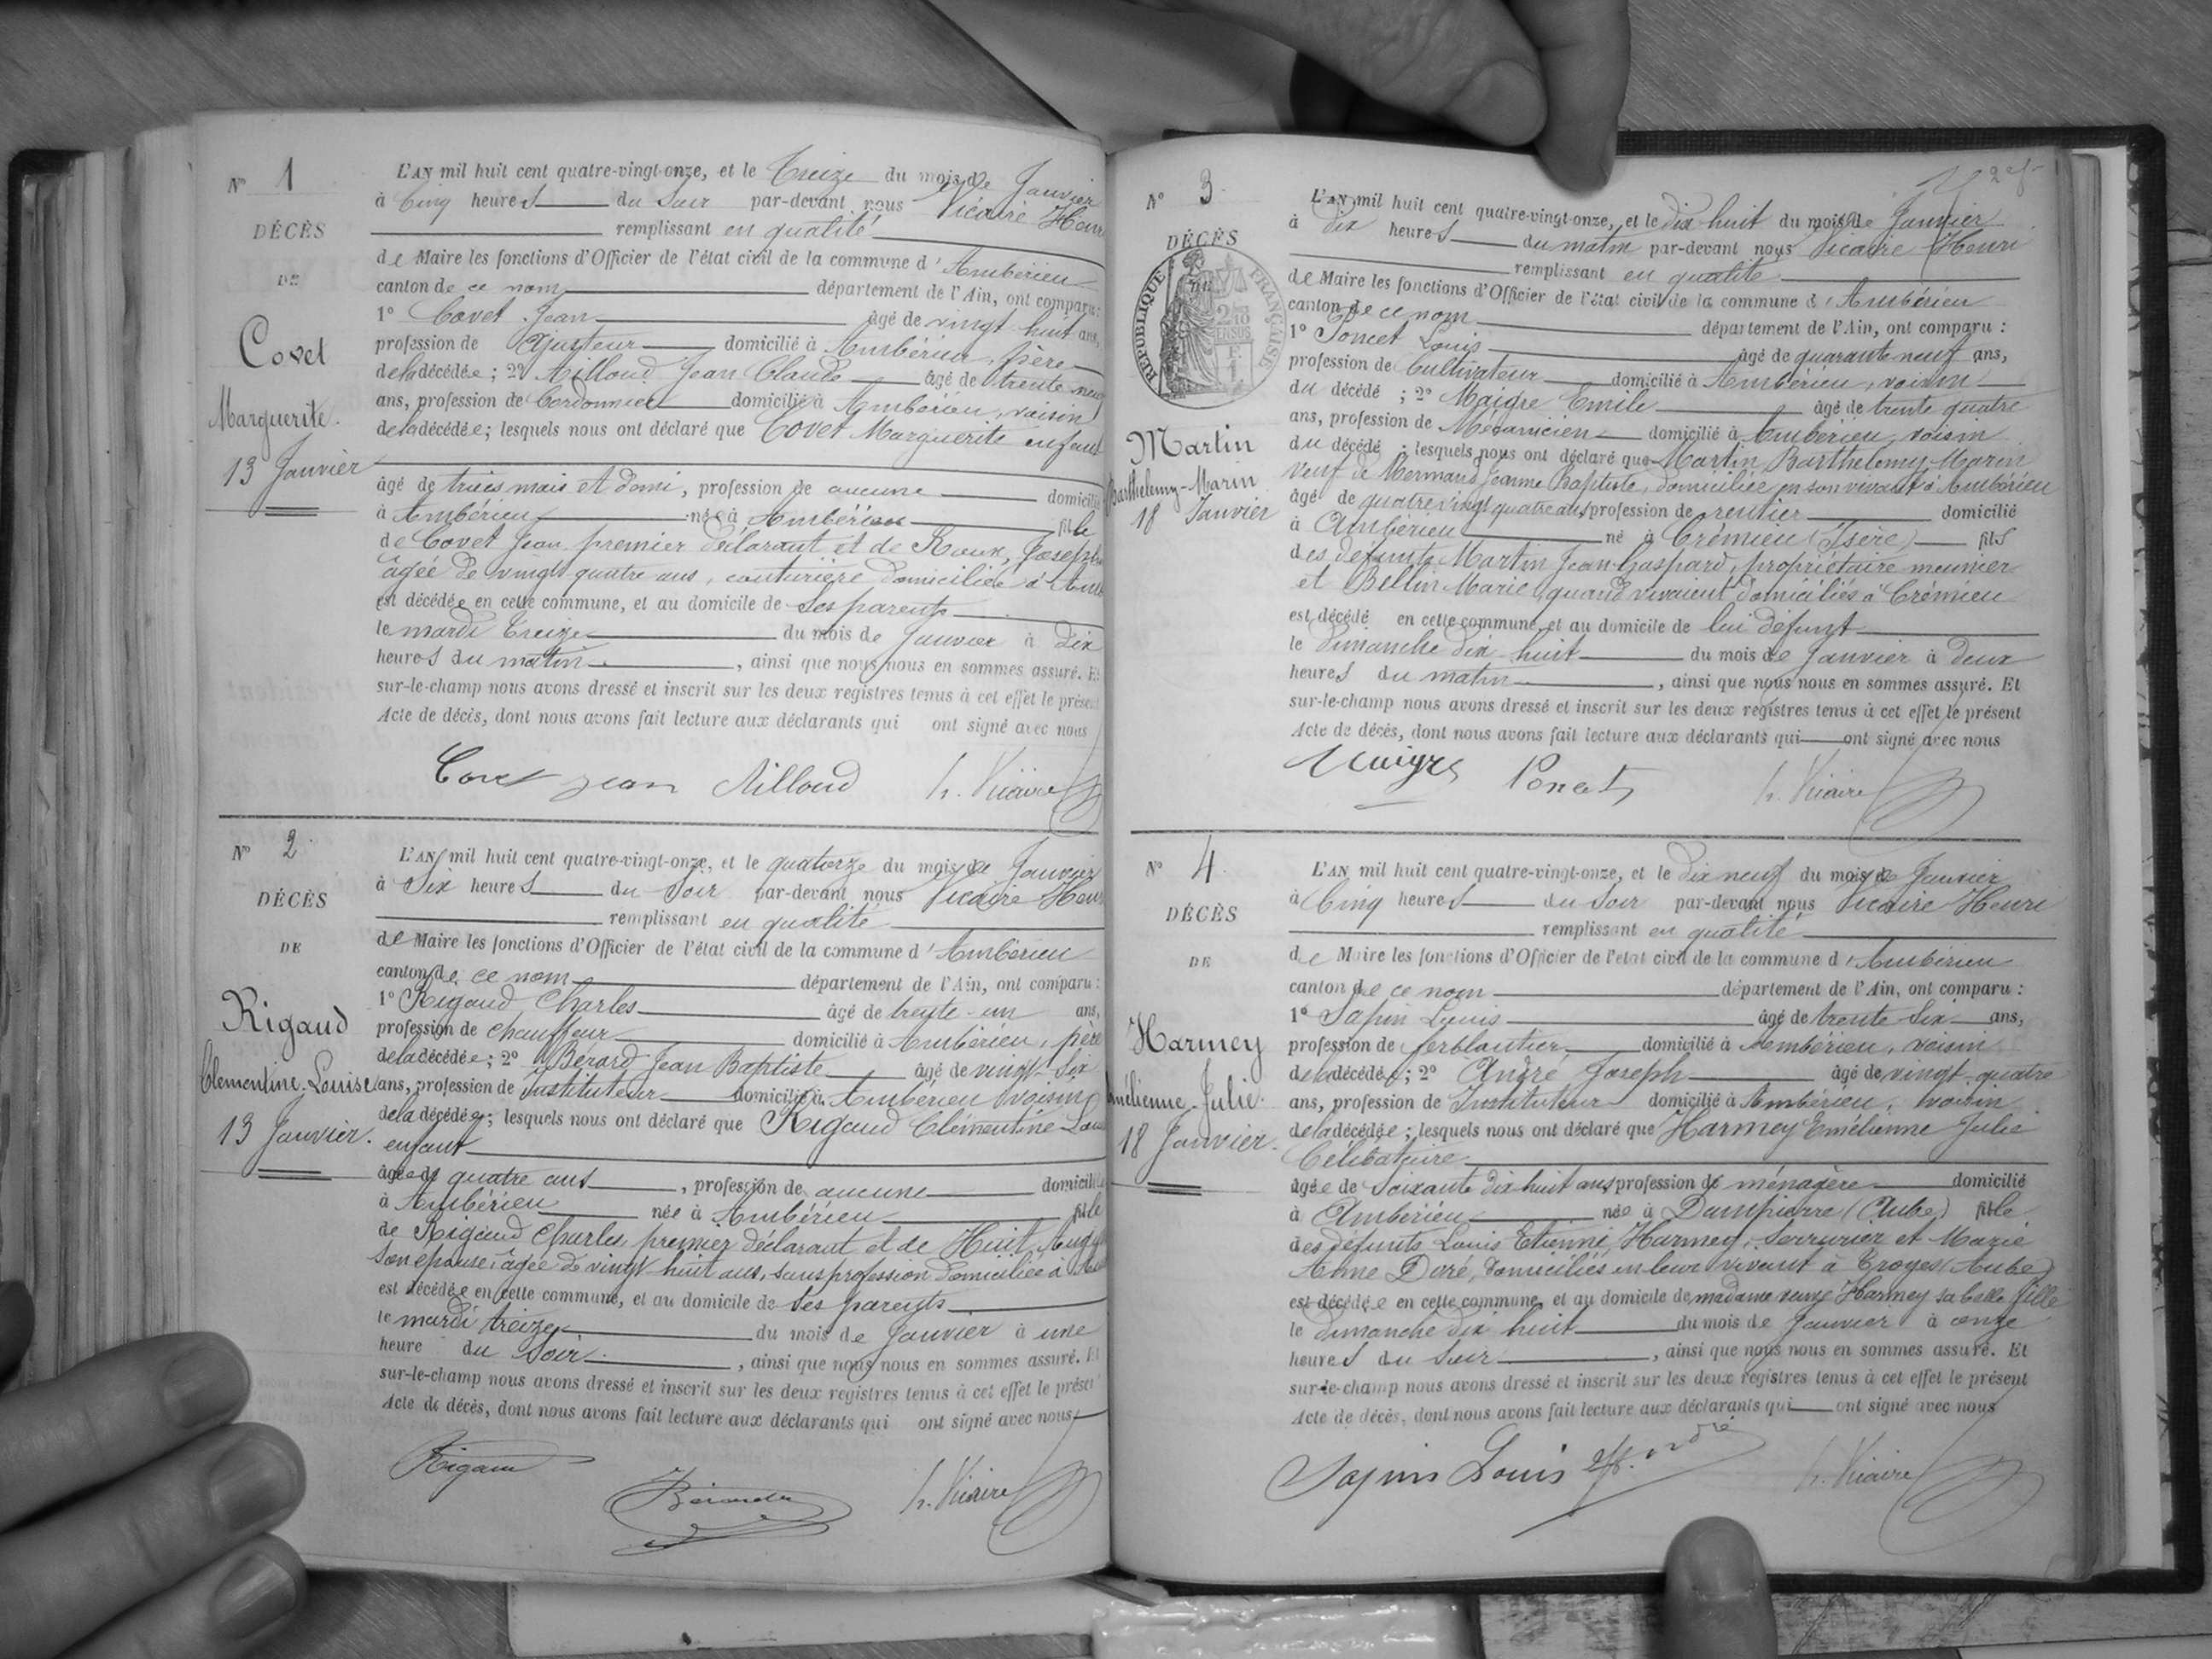 N° 1
DÉCÈS
DE
Covet
Marguerite.
13 Janvier
L'AN mil huit cent quatre-vingt-onze, et le Treize du mois de Janvier
à Cinq heures du Soir par-devant nous Vicaire Henri
remplissant en qualité
de Maire les fonctions d'Officier de l'état civil de la commune d'Ambérieu
canton de ce nom département de l'Ain, ont comparu :
1° Covet Jean âgé de vingt huit ans,
profession de Ajusteur domicilié à Ambérieu, père
de la décédée ; 2° Milloud Jean Claude âgé de trente neuf
ans, profession de Cordonnier domicilié à Ambérieu, voisin
de la décédée ; lesquels nous ont déclaré que Covet Marguerite enfant
âgé de trois mois et demi, profession de aucune domicilié
à Ambérieu née à Ambérieu fille
de Covet Jean premier déclarant et de Roux, Joseph
âgée de vingt quatre ans, couturière domiciliée à Amb
est décédée en cette commune, et au domicile de Ses parents
le mardi Treize du mois de Janvier à dix
heures du matin , ainsi que nous nous en sommes assuré. Et
sur-le-champ nous avons dressé et inscrit sur les deux registres tenus à cet effet le présent
Acte de décès, dont nous avons fait lecture aux déclarants qui ont signé avec nous
Covet Jean Milloud h. Vicaire
N° 2
DÉCÈS
DE
Rigaud
Clementine-Louise
13 Janvier.
L'AN mil huit cent quatre-vingt-onze, et le quatorze du mois de Janvier
à Six heures du Soir par-devant nous Vicaire Henri
remplissant en qualité
de Maire les fonctions d'Officier de l'état civil de la commune d'Ambérieu
canton de ce nom département de l'Ain, ont comparu :
1° Rigaud Charles âgé de trente-un ans,
profession de chauffeur domicilié à Ambérieu, père
de la décédée ; 2° Bérard Jean Baptiste âgé de vingt-six
ans, profession de Instituteur domicilié à Ambérieu voisin
de la décédée ; lesquels nous ont déclaré que Rigaud Clémentine Lou
enfant
âgée de quatre ans , profession de aucune domicilié
à Ambérieu née à Ambérieu fille
de Rigaud Charles, premier déclarant et de Huit,
Son épouse, âgée de vingt huit ans, sans profession domiciliée à Am
est décédée en cette commune, et au domicile de Ses parents
le mardi treize du mois de Janvier à une
heure du Soir , ainsi que nous nous en sommes assuré. Et
sur-le-champ nous avons dressé et inscrit sur les deux registres tenus à cet effet le présent
Acte de décès, dont nous avons fait lecture aux déclarants qui ont signé avec nous
Rigaud Bérard h. Vicaire
N° 3
DÉCÈS
RÉPUBLIQUE FRANÇAISE
Martin
Barthelemy-Marin
18 Janvier
L'AN mil huit cent quatre-vingt-onze, et le dix-huit du mois de Janvier
à dix heures du matin par-devant nous Vicaire Henri
remplissant en qualité
de Maire les fonctions d'Officier de l'état civil de la commune d'Ambérieu
canton de ce nom département de l'Ain, ont comparu :
1° Poncet Louis âgé de quarante neuf ans,
profession de Cultivateur domicilié à Ambérieu, voisin
du décédé ; 2° Maigre Emile âgé de trente quatre
ans, profession de Mécanicien domicilié à Ambérieu, voisin
du décédé ; lesquels nous ont déclaré que Martin Barthelemy-Marin
veuf de Mermans Jeanne Baptiste, domiciliée en son vivant à Ambérieu
âgé de quatre vingt quatre ans profession de rentier domicilié
à Ambérieu né à Crémieu (Isère) fils
des défunts Martin Jean-Gaspard, propriétaire meunier
et Bellin Marie, quand vivaient domiciliés à Crémieu
est décédé en cette commune, et au domicile de lui défunt
le Dimanche dix-huit du mois de Janvier à deux
heures du matin , ainsi que nous nous en sommes assuré. Et
sur-le-champ nous avons dressé et inscrit sur les deux registres tenus à cet effet le présent
Acte de décès, dont nous avons fait lecture aux déclarants qui ont signé avec nous
Maigre Poncet h. Vicaire
N° 4
DÉCÈS
DE
Harmey
Emélienne-Julie.
18 Janvier.
L'AN mil huit cent quatre-vingt-onze, et le dix neuf du mois de Janvier
à Cinq heures du Soir par-devant nous Vicaire Henri
remplissant en qualité
de Maire les fonctions d'Officier de l'état civil de la commune d'Ambérieu
canton de ce nom département de l'Ain, ont comparu :
1° Sapin Louis âgé de trente-six ans,
profession de ferblantier domicilié à Ambérieu, voisin
de la décédée ; 2° André Joseph âgé de vingt-quatre
ans, profession de Instituteur domicilié à Ambérieu, voisin
de la décédée ; lesquels nous ont déclaré que Harmey Emélienne Julie
Célibataire
âgée de Soixante dix huit ans profession de ménagère domicilié
à Ambérieu née à Dampierre (Aube) fille
des défunts Louis Etienne Harmey, Serrurier et Marie
Anne Doré, domiciliés en leur vivant à Troyes (Aube)
est décédée en cette commune, et au domicile de madame veuve Harmey sa belle fille
le Dimanche dix huit du mois de Janvier à onze
heures du Soir , ainsi que nous nous en sommes assuré. Et
sur-le-champ nous avons dressé et inscrit sur les deux registres tenus à cet effet le présent
Acte de décès, dont nous avons fait lecture aux déclarants qui ont signé avec nous
Sapin Louis André h. Vicaire